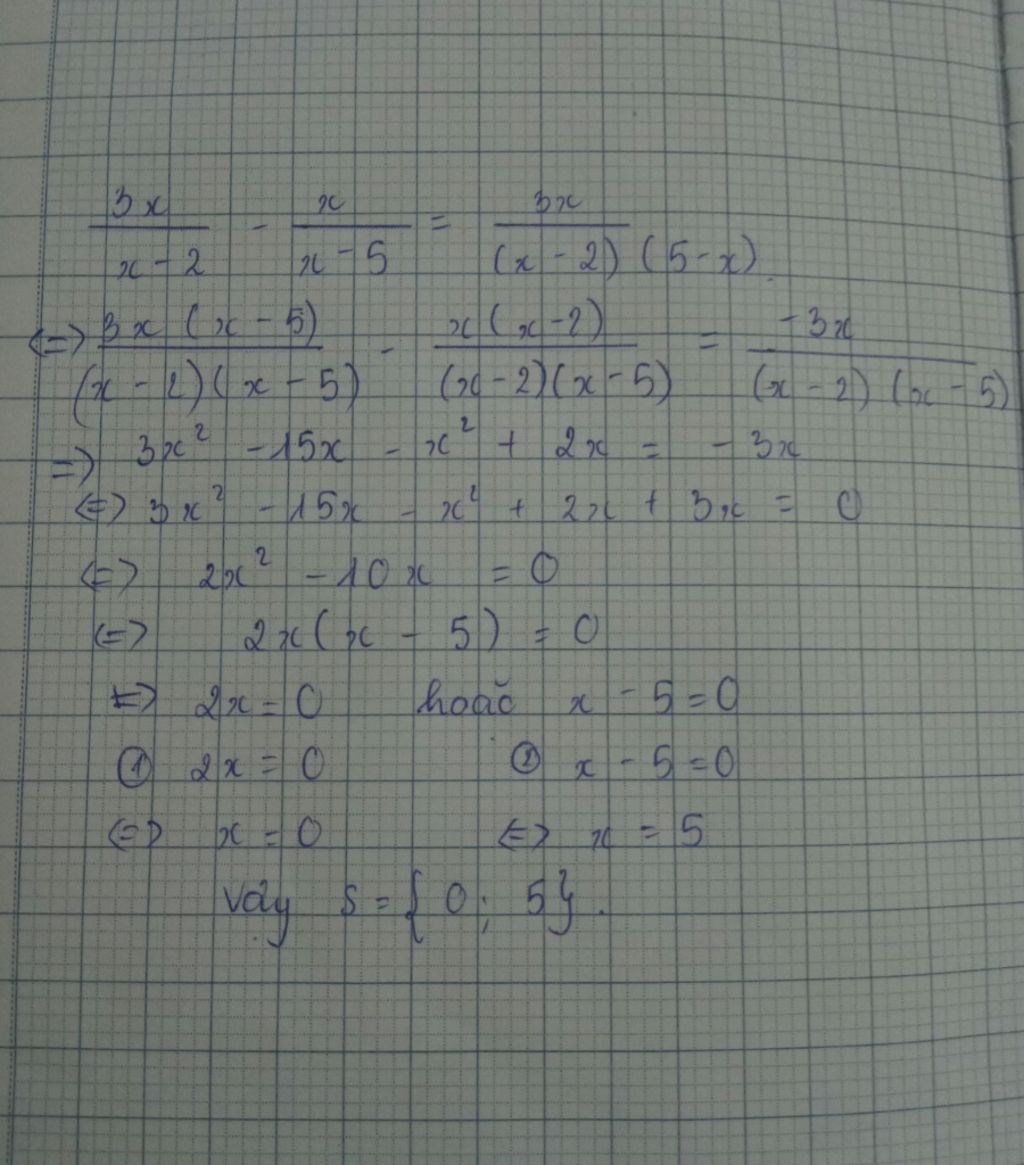 3x/(x - 2) - x/(x - 5) = 3x/((x - 2)(5 - x))
<=> 3x(x - 5)/((x - 2)(x - 5)) - x(x - 2)/((x - 2)(x - 5)) = -3x/((x - 2)(x - 5))
=> 3x² - 15x - x² + 2x = - 3x
<=> 3x² - 15x - x² + 2x + 3x = 0
<=> 2x² - 10x = 0
<=> 2x(x - 5) = 0
<=> 2x = 0 hoặc x - 5 = 0
① 2x = 0 ② x - 5 = 0
<=> x = 0 <=> x = 5
Vậy S = { 0 ; 5}.